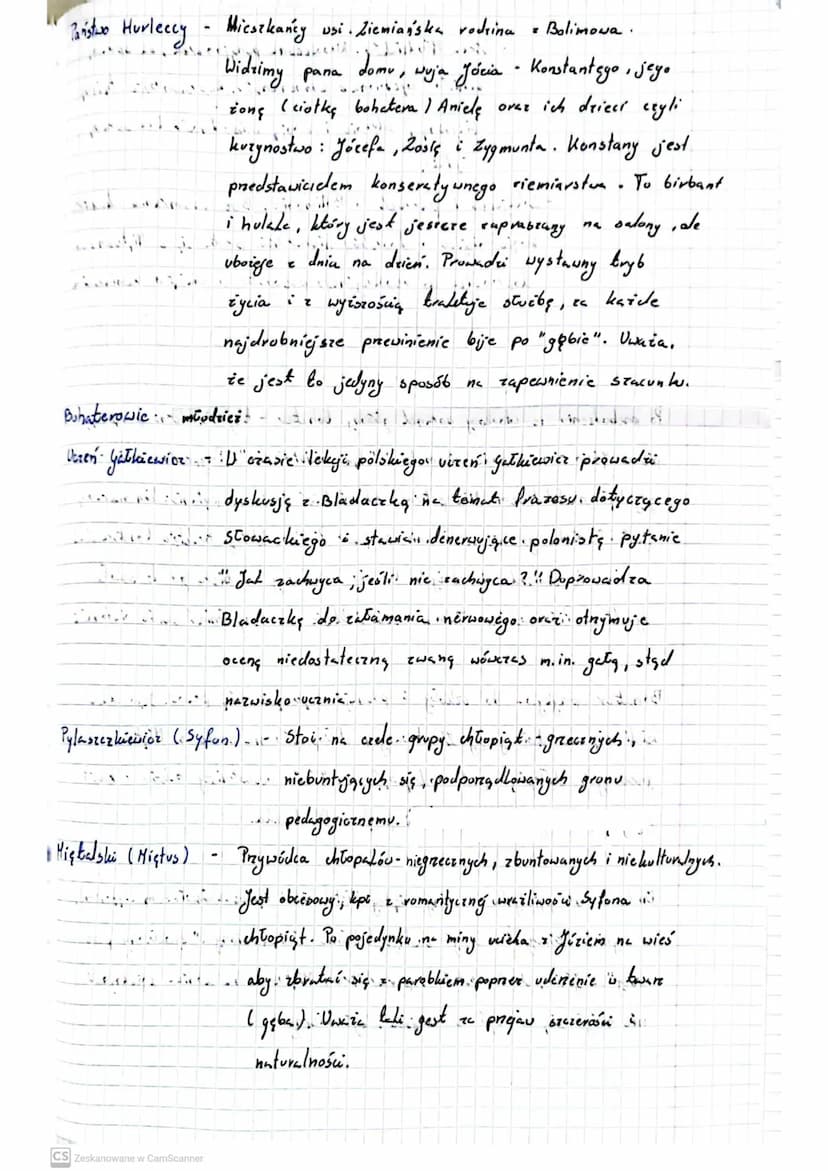 Państwo Hurleccy - Mieszkańcy wsi. Ziemiańska rodzina z Bolimowa.
Widzimy pana domu, wuja Józia - Konstantego, jego
żonę (ciotkę bohatera) Anielę oraz ich dzieci czyli
kuzynostwo: Józefa, Zosię i Zygmunta. Konstany jest
przedstawicielem konseratywnego ziemiarstwa. To birbant
i hulaka, który jest jeszcze zapraszany na salony, ale
ubożeje z dnia na dzień. Prowadzi wystawny tryb
życia i z wyższością traktuje służbę, za każde
najdrobniejsze przewinienie bije po "gębie". Uważa,
że jest to jedyny sposób na zapewnienie szacunku.
Bohaterowie - młodzież
Uczeń Gałkiewicz - W czasie lekcji polskiego uczeń Gałkiewicz prowadzi
dyskusję z Bladaczką na temat frazesu dotyczącego
Słowackiego i stawia denerwujące polonistę pytanie
"Jak zachwyca, jeśli nie zachwyca?" Doprowadza
Bladaczkę do załamania nerwowego oraz otrzymuje
ocenę niedostateczną zwaną wówczas m.in. gałą, stąd
nazwisko ucznia.
Pylaszczkiewicz (Syfon) - Stoi na czele grupy chłopiąt - grzecznych,
niebuntujących się, podporządkowanych gronu
pedagogicznemu.
Miętalski (Miętus) - Przywódca chłopaków - niegrzecznych, zbuntowanych i niekulturalnych.
Jest obcesowy, kpi z romantycznej wrażliwości Syfona i
chłopiąt. Po pojedynku na miny ucieka z Józiem na wieś
aby zbratać się z parobkiem poprzez uderzenie w twarz
(gęba). Uważa taki gest za przejaw szczerości i
naturalności.
CS Zeskanowane w CamScanner